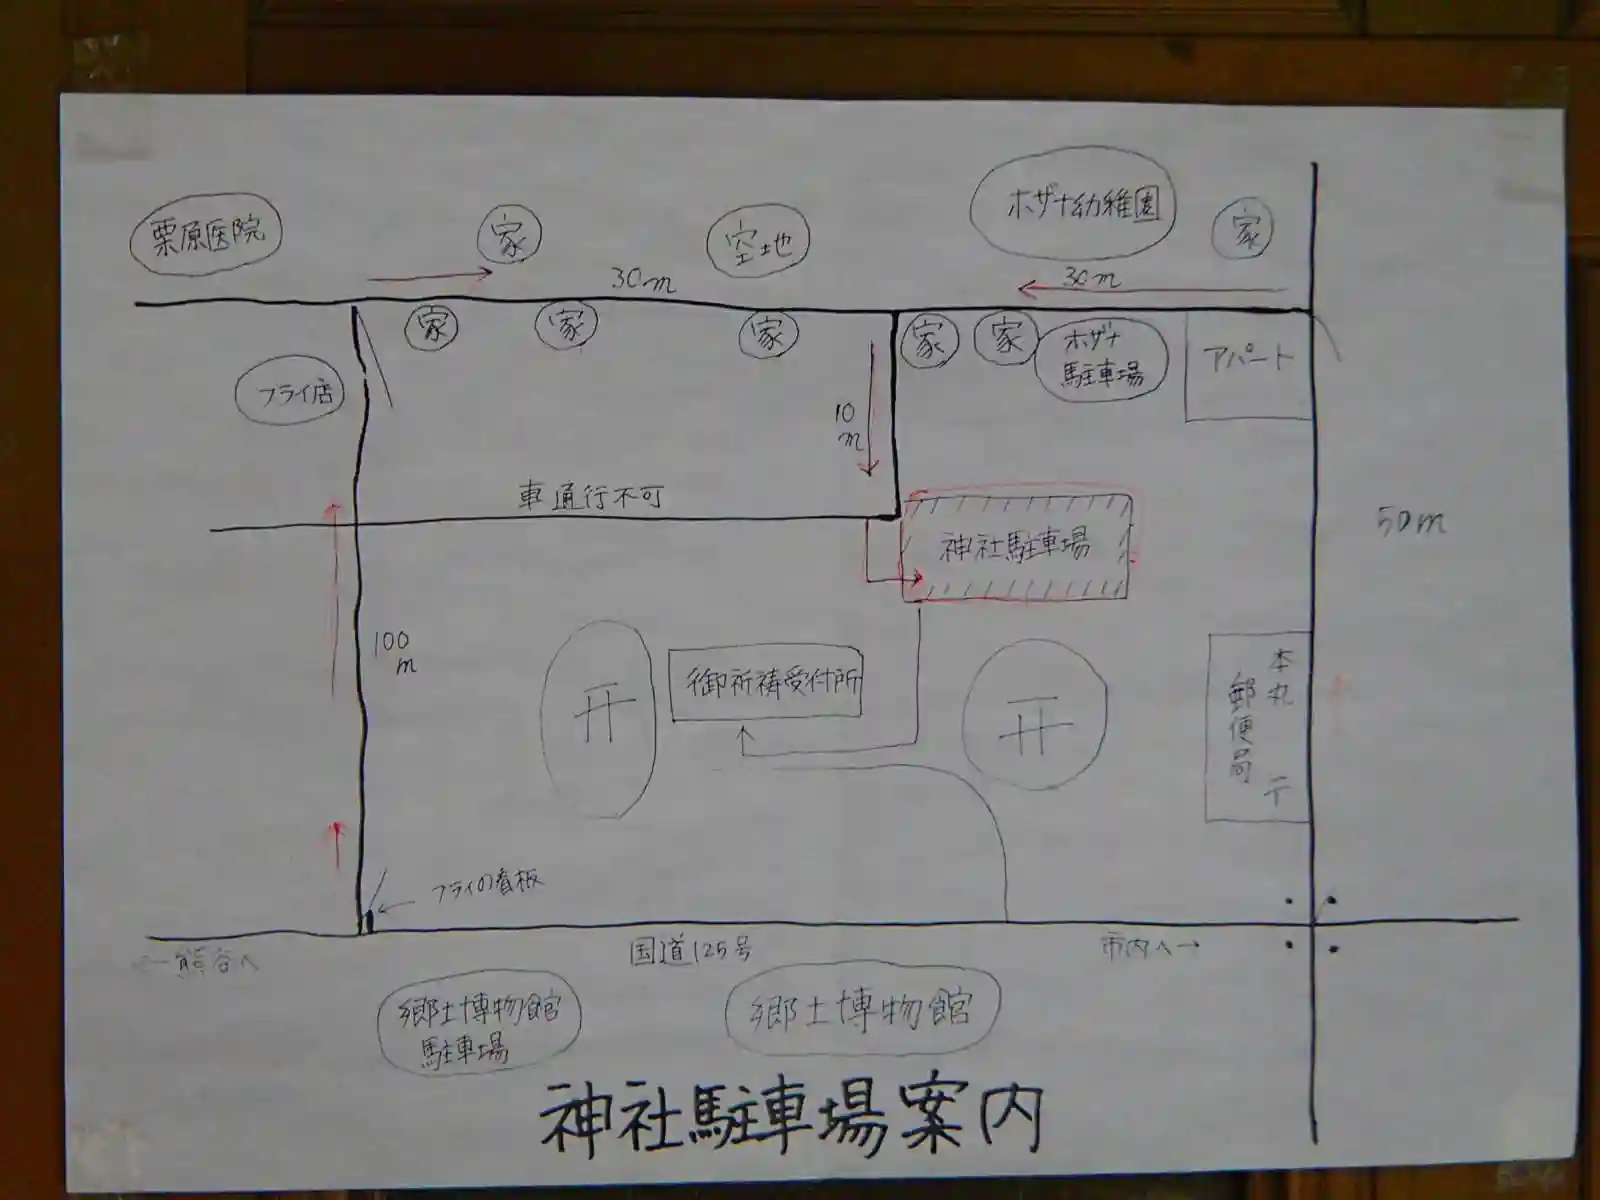 栗原医院
家
空地
ホザナ幼稚園
家
30m
30m
家
家
家
家
家
ホザナ
駐車場
アパート
フライ店
10
m
車通行不可
神社駐車場
50m
100
m
御祈祷受付所
本丸
郵便局
〒
フライの看板
国道125号
←熊谷へ
市内へ→
郷土博物館
駐車場
郷土博物館
神社駐車場案内